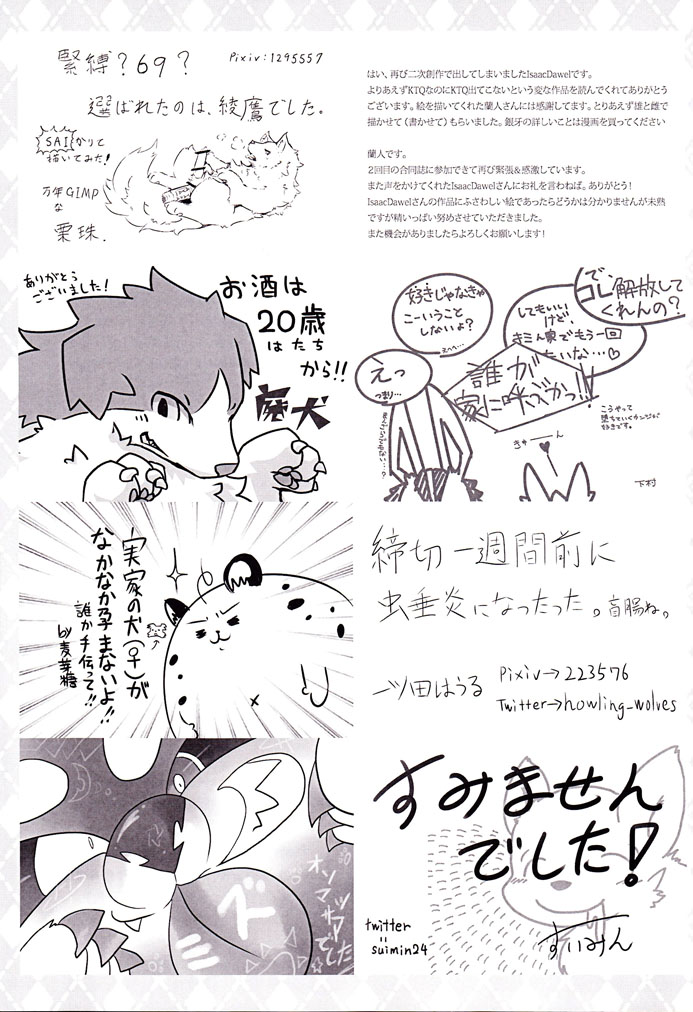 緊縛?69?
Pixiv:1295557
選ばれたのは、綾鷹でした。
SAIかりて
描いてみた!
万年GIMP
な
栗珠.
はい、再び二次創作で出してしまいましたIsaacDawelです。
よりあえずKTQなのにKTQ出てこないという変な作品を読んでくれてありがとう
ございます。絵を描いてくれた蘭人さんには感謝してます。とりあえず雄と雌で
描かせて(書かせて)もらいました。銀牙の詳しいことは漫画を買ってください
蘭人です。
2回目の合同誌に参加できて再び緊張&感激しています。
また声をかけてくれたIsaacDawelさんにお礼を言わねば。ありがとう!
IsaacDawelさんの作品にふさわしい絵であったらどうかは分かりませんが未熟
ですが精いっぱい努めさせていただきました。
また機会がありましたらよろしくお願いします!
ありがとう
ございました!
お酒は
20歳
はたち
から!!
廃犬
で、
コレ解放して
くれんの?
好きじゃなきゃ
こーいうこと
しないよ?
えへへ…
してもいい!
けど、
キミん家でもう一回
たいな…♡
えっ
つまり…
誰が
家に呼ぶかっ!!
こうやって
堕ちていくカンジが
好きです。
きゅーーん
下村
実家の犬(♀)が
なかなか孕まないよ!!
誰か手伝って!!
by麦芽糖
締切一週間前に
虫垂炎になったった。盲腸ね。
一ツ田はうる
Pixiv→223576
Twitter→howling_wolves
オソマツサマ
でした
ズミ
すみません
でした!
twitter
=
suimin24
すいみん